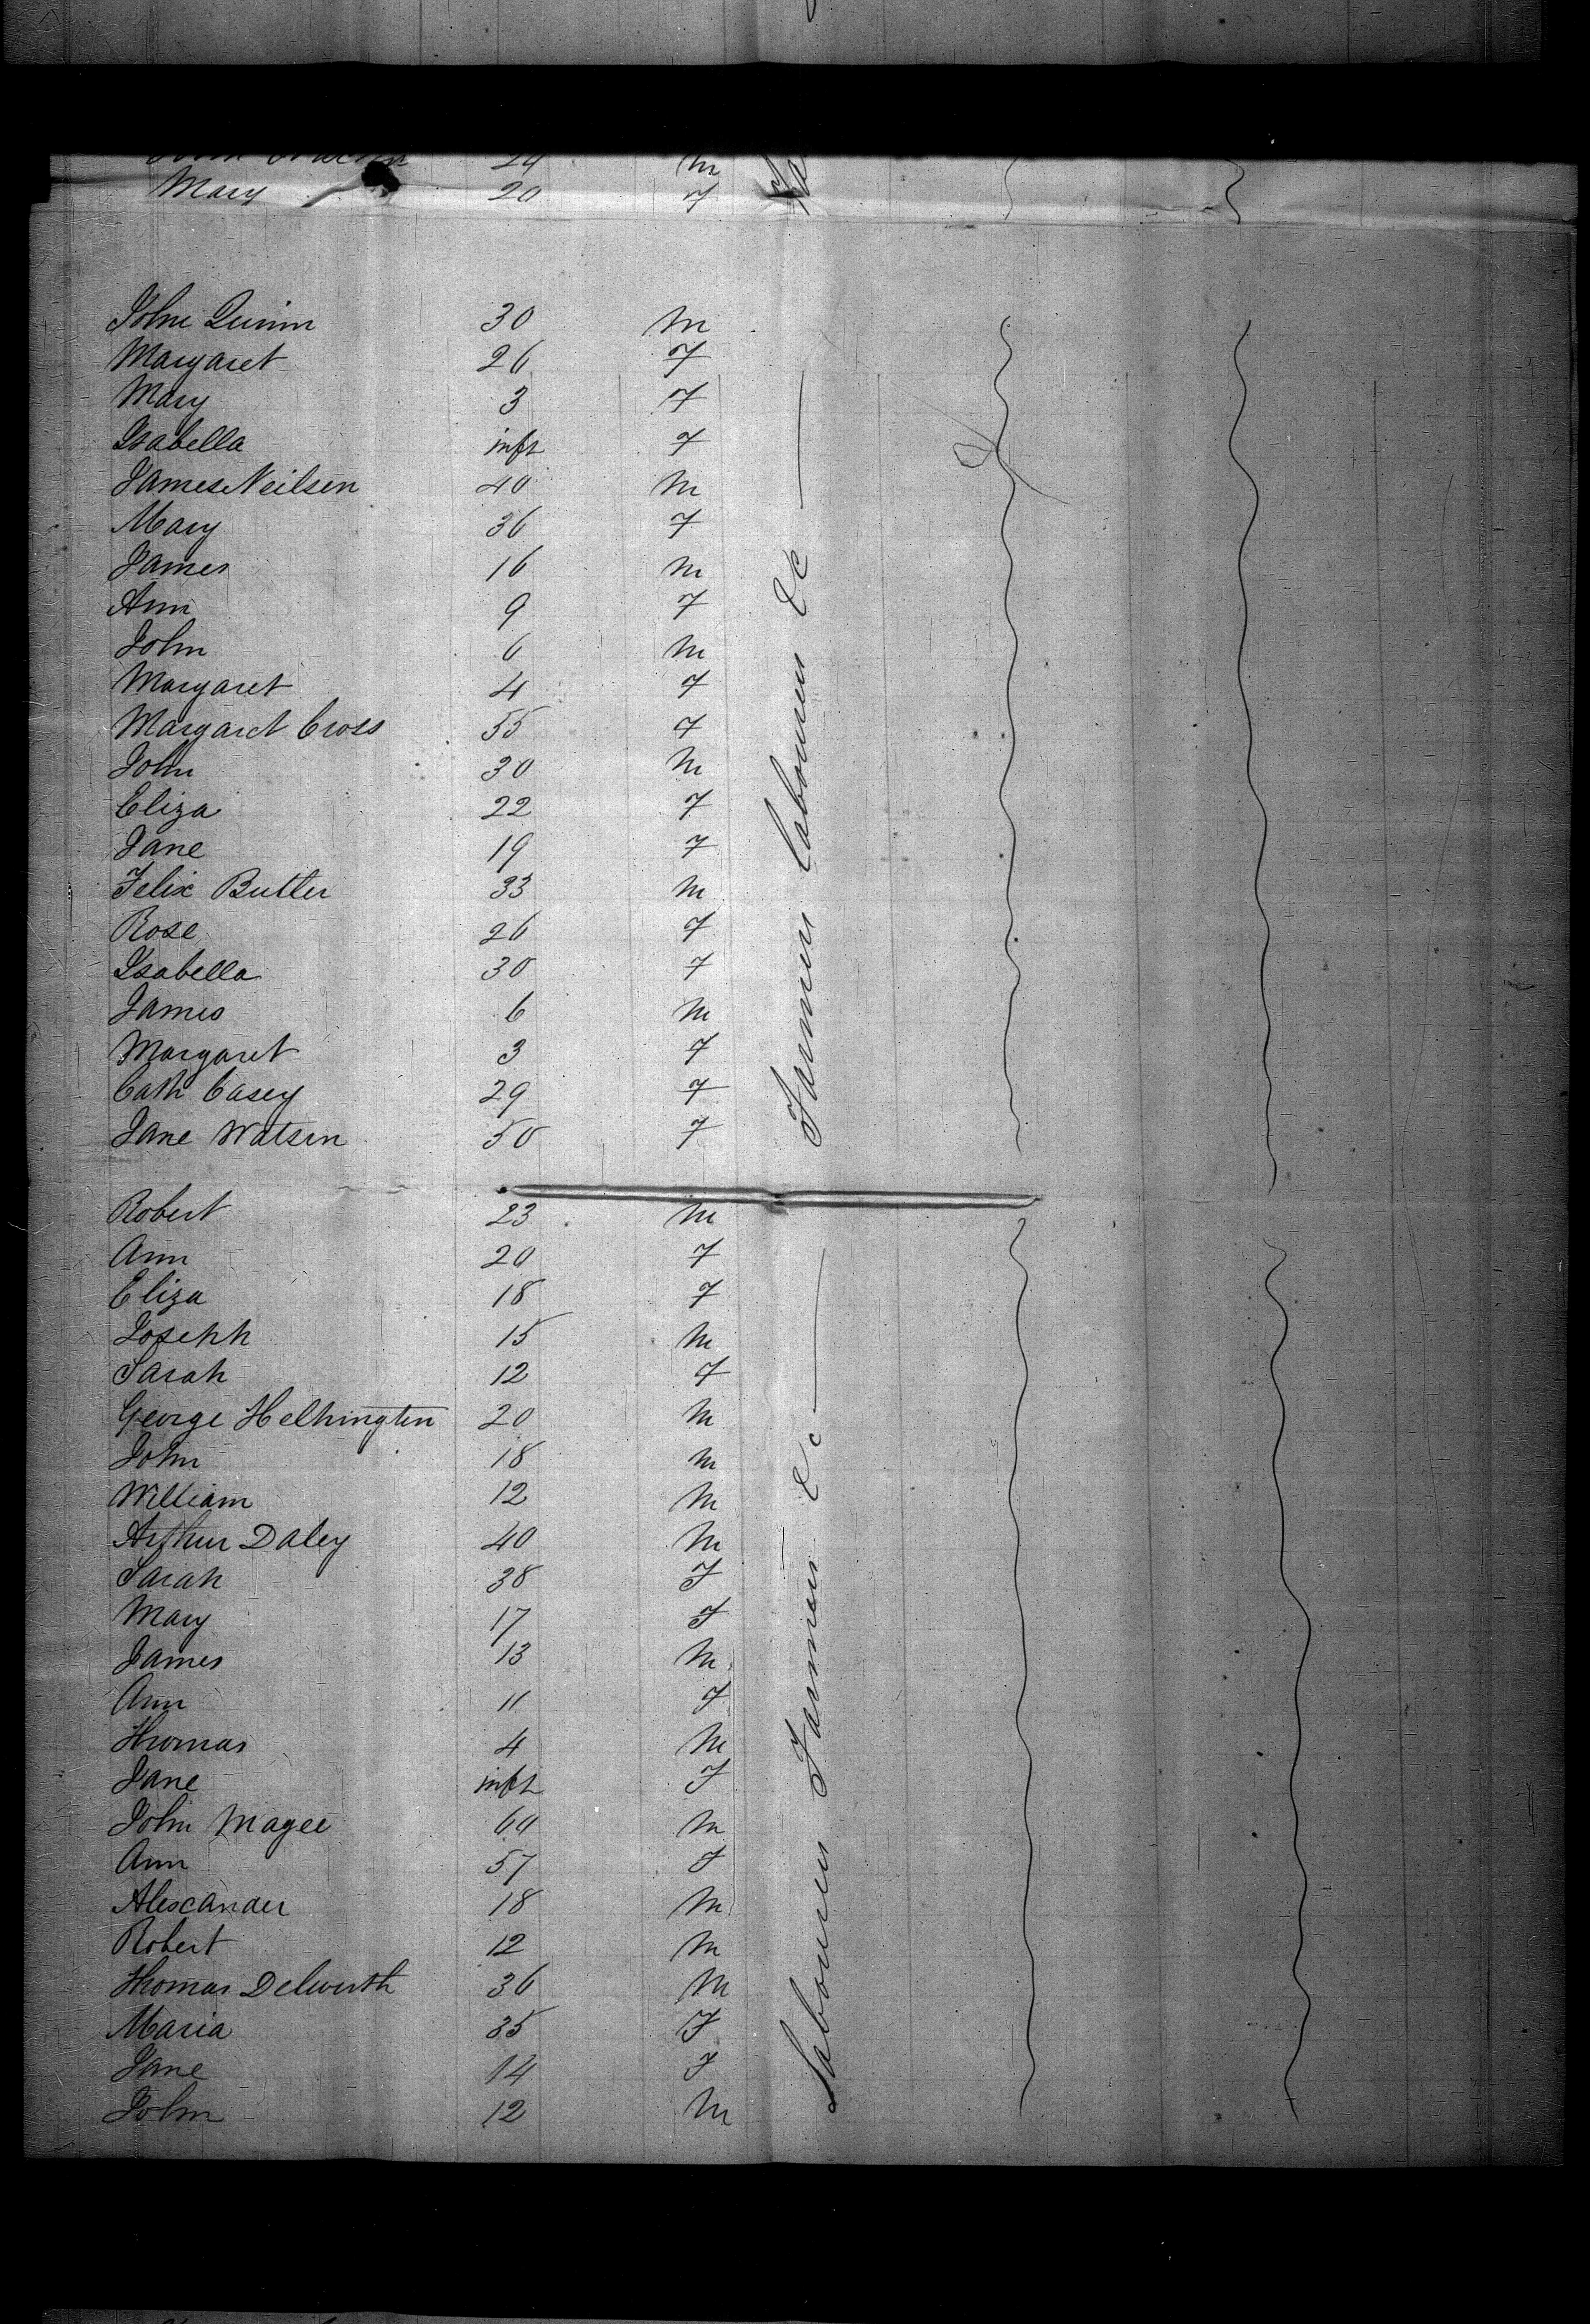 24 m
Mary 20 F
John Quinn 30 m
Margaret 26 F
Mary 3 F
Isabella inft F
James Neilson 40 m
Mary 36 F
James 16 m
Ann 9 F
John 6 m
Margaret 4 F
Margaret Cross 55 F
John 30 m
Eliza 22 F
Jane 19 F
Felix Butler 33 m
Rose 26 F
Isabella 30 F
James 6 m
Margaret 3 F
Cath Casey 29 F
Jane Watson 50 F
Farmers Labourers &c
Robert 23 m
Ann 20 F
Eliza 18 F
Joseph 15 m
Sarah 12 F
George Helhington 20 m
John 18 m
William 12 m
Arthur Daley 40 m
Sarah 38 F
Mary 17 F
James 13 m
Ann 11 F
Thomas 4 m
Jane inft F
John Magee 60 m
Ann 57 F
Alexander 18 m
Robert 12 m
Thomas Delworth 36 m
Maria 35 F
Jane 14 F
John 12 m
Labourers Farmers &c